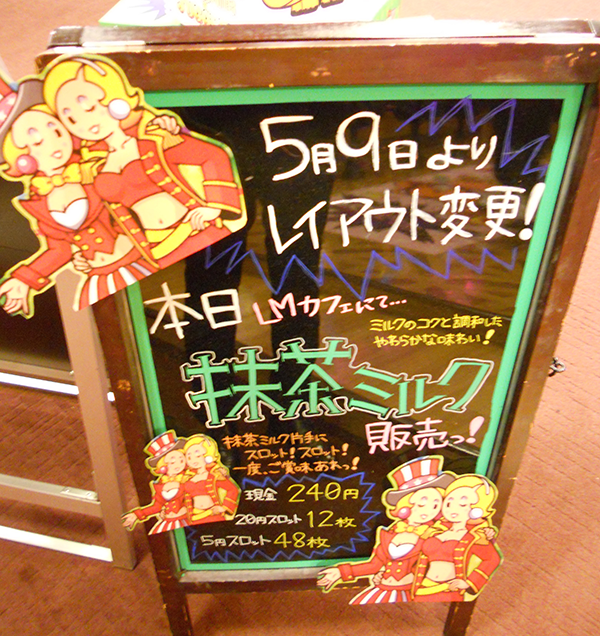 5月9日より
レイアウト変更!
本日LMカフェにて…
ミルクのコクと調和した
やわらかな味わい!
抹茶ミルク
販売っ!
抹茶ミルク片手に
スロット!スロット!
一度、ご賞味あれっ!
現金 240円
20円スロット 12枚
5円スロット 48枚